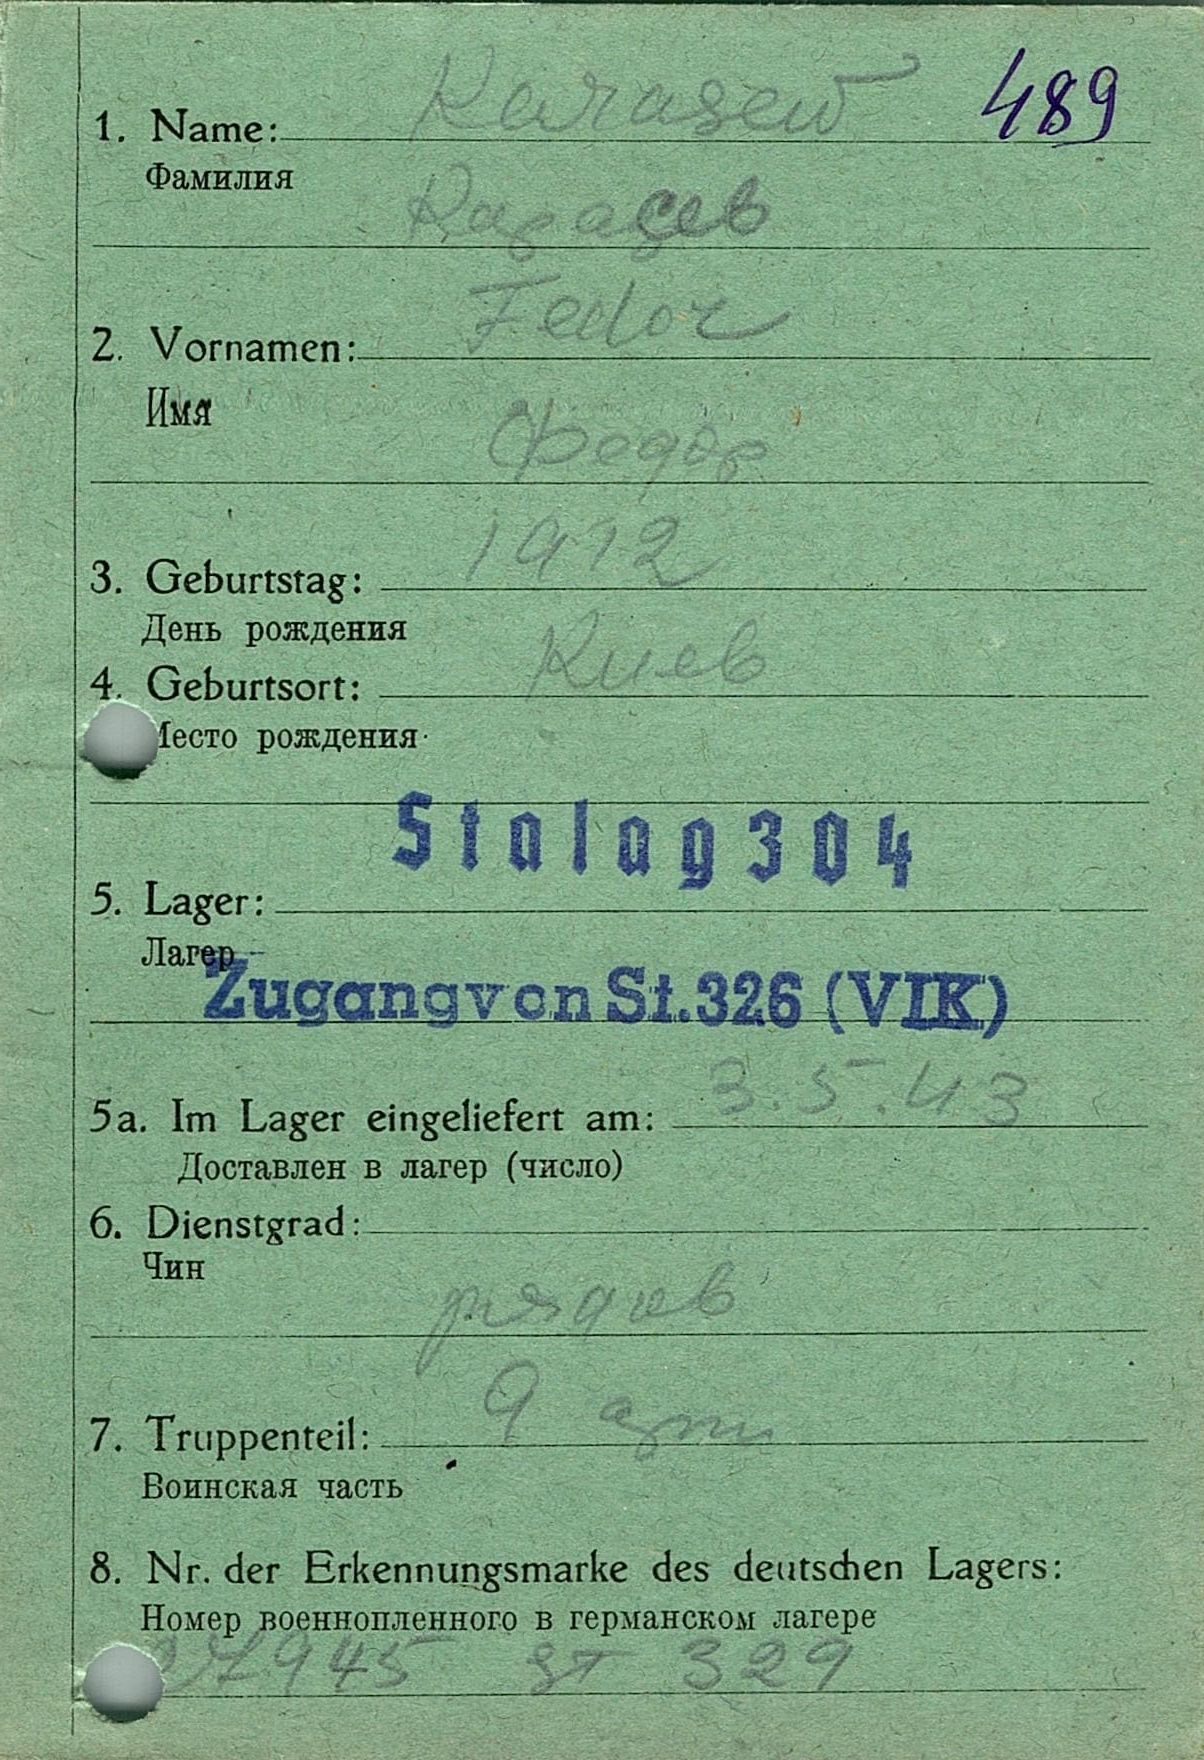 489
1. Name: Karasew
Фамилия
Карасев
2. Vornamen: Fedor
Имя
Федор
3. Geburtstag: 1912
День рождения
4. Geburtsort: Киев
Место рождения
Stalag 304
5. Lager:
Лагер
Zugang von St. 326 (VIK)
5a. Im Lager eingeliefert am: 3.5.43
Доставлен в лагер (число)
6. Dienstgrad:
Чин
рядов
7. Truppenteil: 9
Воинская часть
8. Nr. der Erkennungsmarke des deutschen Lagers:
Номер военнопленного в германском лагере
27945 St 329